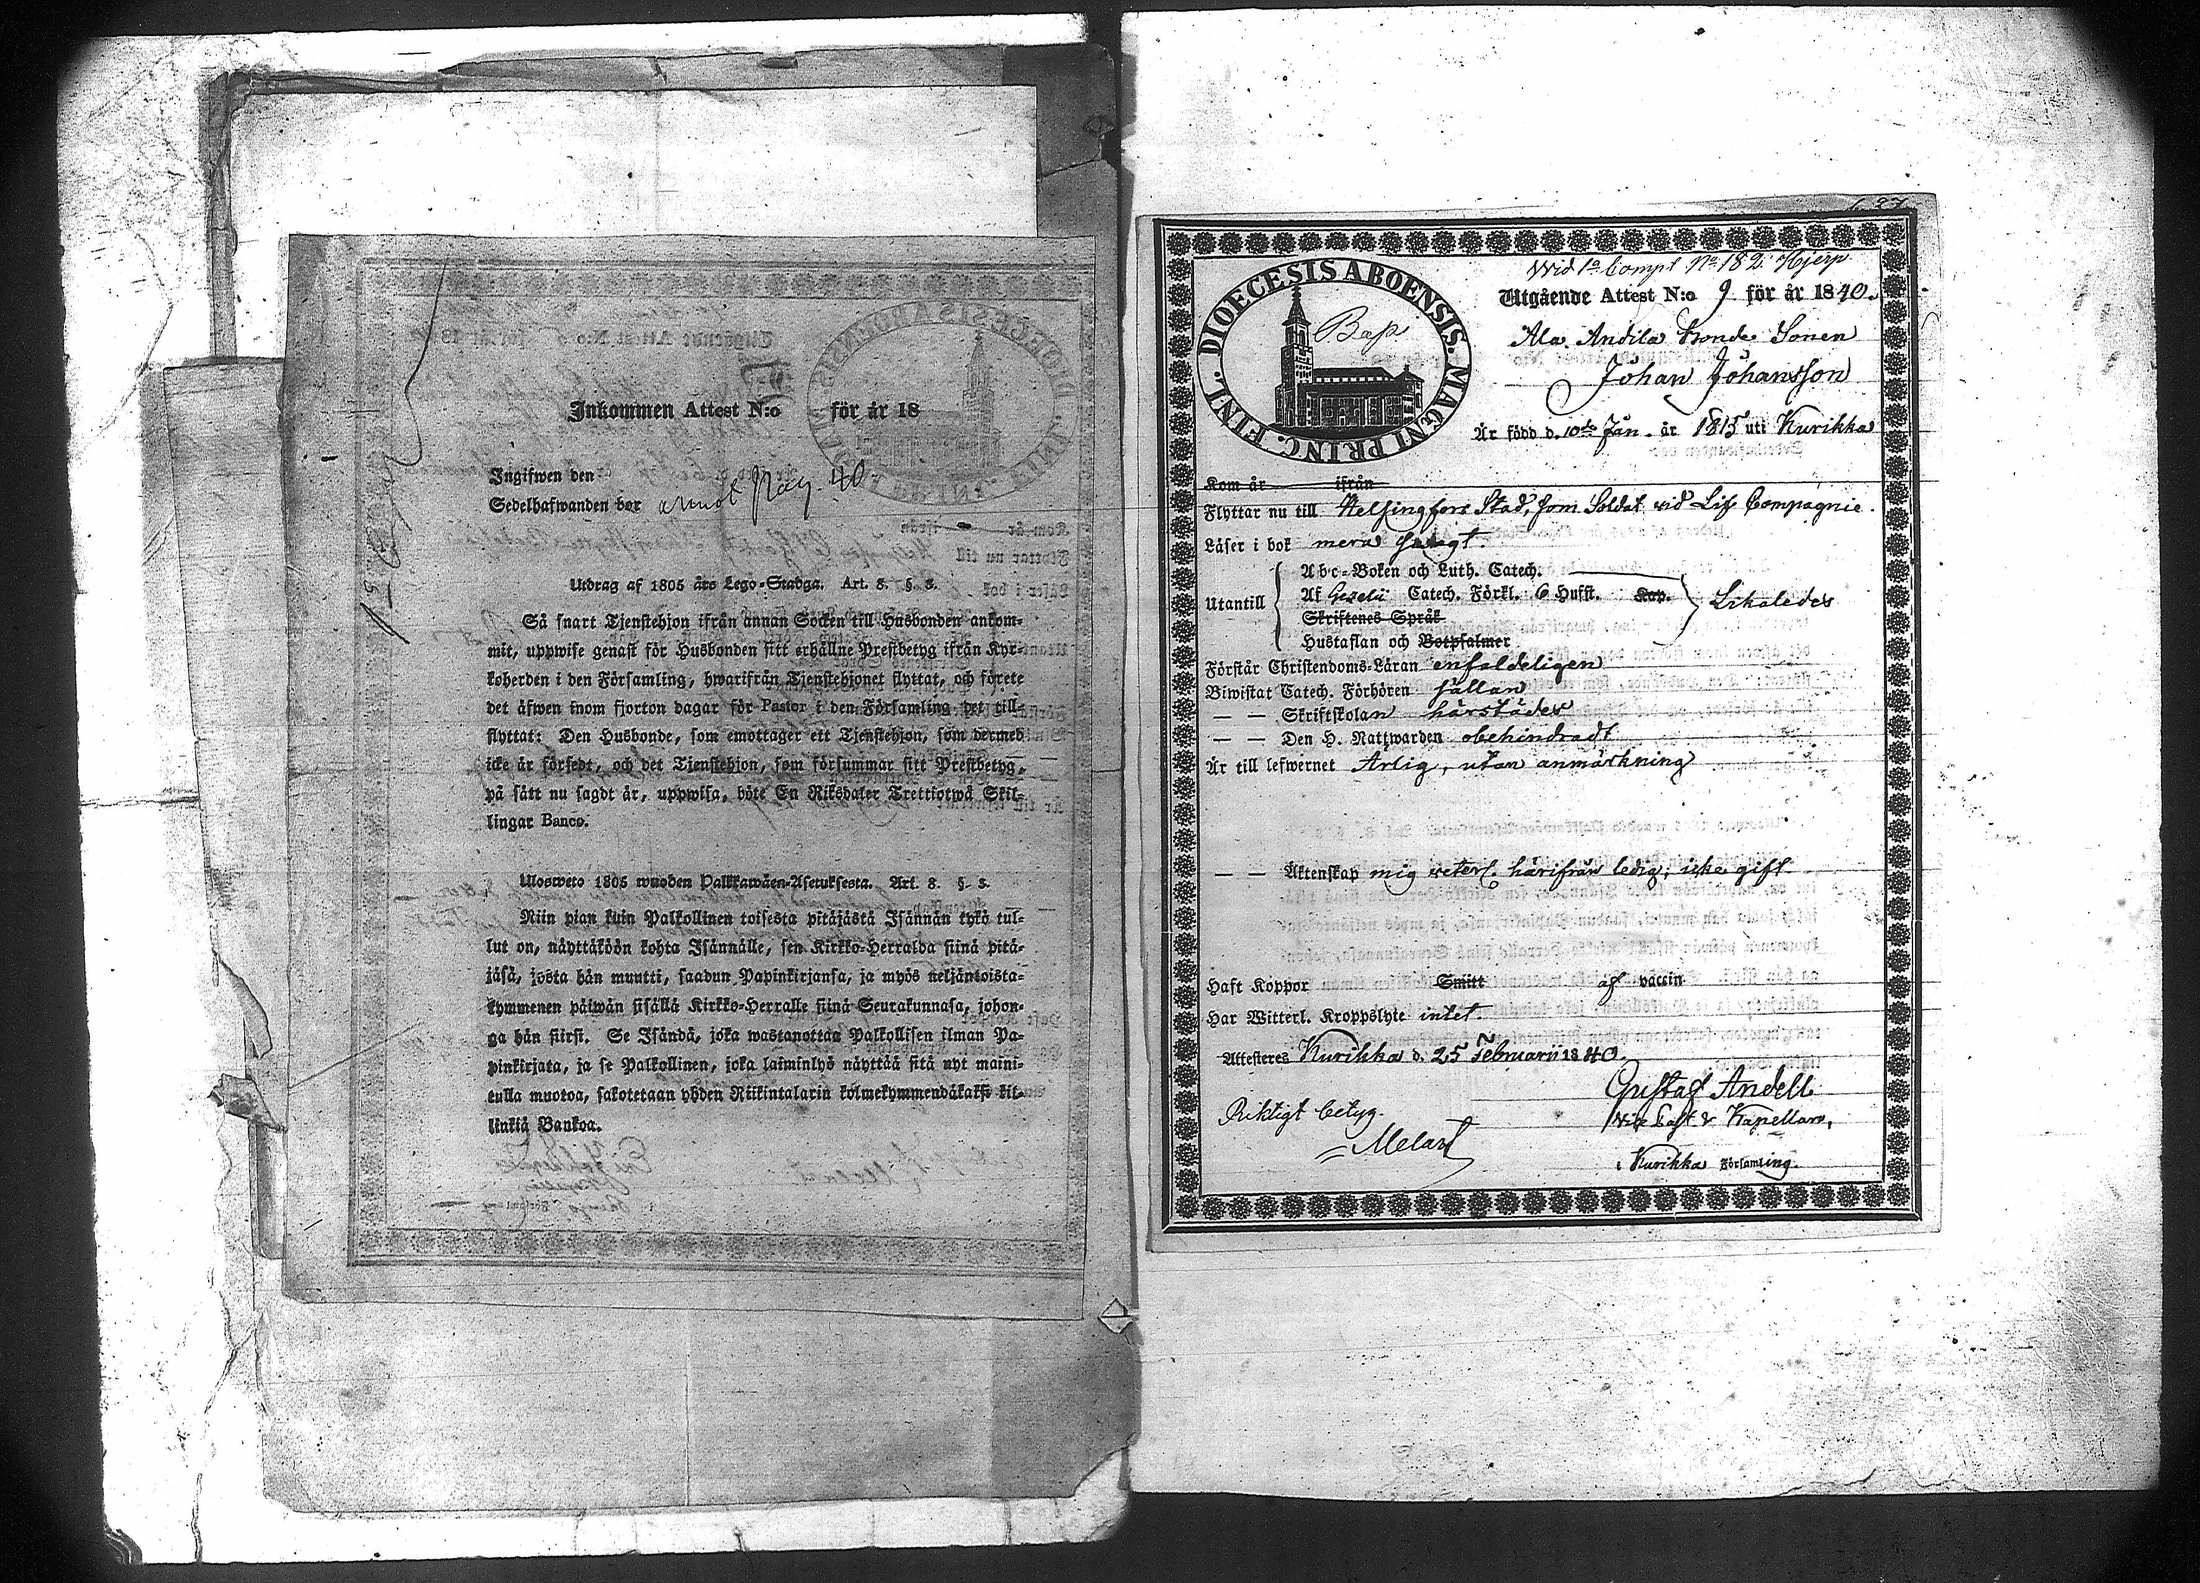 Inkommen Attest N:o för år 18
Ingifwen den
Sedelhafwanden bor
Utdrag af 1805 års Lego-Stadga. Art. 8. §. 3.
Så snart Tjenstehjon ifrån annan Socken till Husbonden ankom-
mit, uppwise genast för Husbonden sitt erhållne Prestbetyg ifrån Kyr-
koherden i den Församling, hwarifrån Tjenstehjonet flyttat, och förete
det äfwen inom fjorton dagar för Pastor i den Församling det till-
flyttat: Den Husbonde, som emottager ett Tjenstehjon, som dermed
icke är försedt, och det Tjenstehjon, som försummar sitt Prestbetyg,
på sätt nu sagdt är, uppwisa, böte En Riksdaler Trettiotwå Skil-
lingar Banco.
Ulosweto 1805 wuoden Palkkawäen-Asetuksesta. Art. 8. §. 3.
Niin pian kuin Palkollinen toisesta pitäjästä Isännän tykö tul-
lut on, näyttäköön kohta Isännälle, sen Kirkko-Herralda siinä pitä-
jäsä, josta hän muutti, saadun Papinkirjansa, ja myös neljäntoista-
kymmenen päiwän sisällä Kirkko-Herralle siinä Seurakunnasa, johon-
ga hän siirsi. Se Isändä, joka wastanottaa Palkollisen ilman Pa-
pinkirjata, ja se Palkollinen, joka laiminlyö näyttää sitä nyt maini-
tulla muotoa, sakotetaan yhden Riikintalarin kolmekymmendäkaksi kil-
linkiä Bankoa.
Wid 1a Compt No 182 Hjerp
DIOECESIS ABOENSIS. MAGNI PRINC. FINL.
Bap
Utgående Attest N:o 9 för år 1840.
Ala Andila Bonde Sonen
Johan Johansson
Är född d. 10de Jan. år 1815 uti Kurikka
Kom år ifrån
Flyttar nu till Helsingfors Stad, som Soldat vid Lif Compagnie.
Läser i bok mera swagt.
Abc-Boken och Luth. Catech.
Utantill Af Gezelii Catech. Förkl. 6 Hufst. Kap. Likaledes
Skriftenes Språk
Hustaflan och Botpsalmer
Förstår Christendoms-Läran enfaldeligen
Biwistat Catech. Förhören sällan
— — Skriftskolan härstädes
— — Den H. Nattwarden obehindradt
Är till lefwernet Ärlig, utan anmärkning
— — Äktenskap mig veterl. härifrån ledig; icke gift
Haft Koppor Smitt af vaccin
Har Witterl. Kroppslyte intet.
Attesteres Kurikka d. 25 Februarii 1840.
Gustaf Andell
Vice Past. & Kapellan,
i Kurikka Församling.
Riktigt betyg.
Melart